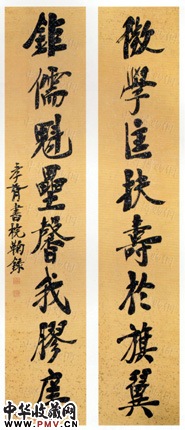 微學匡扶壽於旗翼
鉅儒魁壘馨我膠庠
孝胥書
中华收藏网
www.PMV.CN